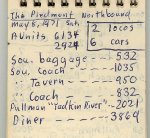 The Piedmont Northbound
May 8, 1971 Sat.
A Units 6134
2924
12 locos
6 cars
Sou. baggage --- 532
Sou. coach --- 1035
" Tavern --- 950
" Coach --- 832
Pullman "Yadkin River" - 2021
Diner --- 3864